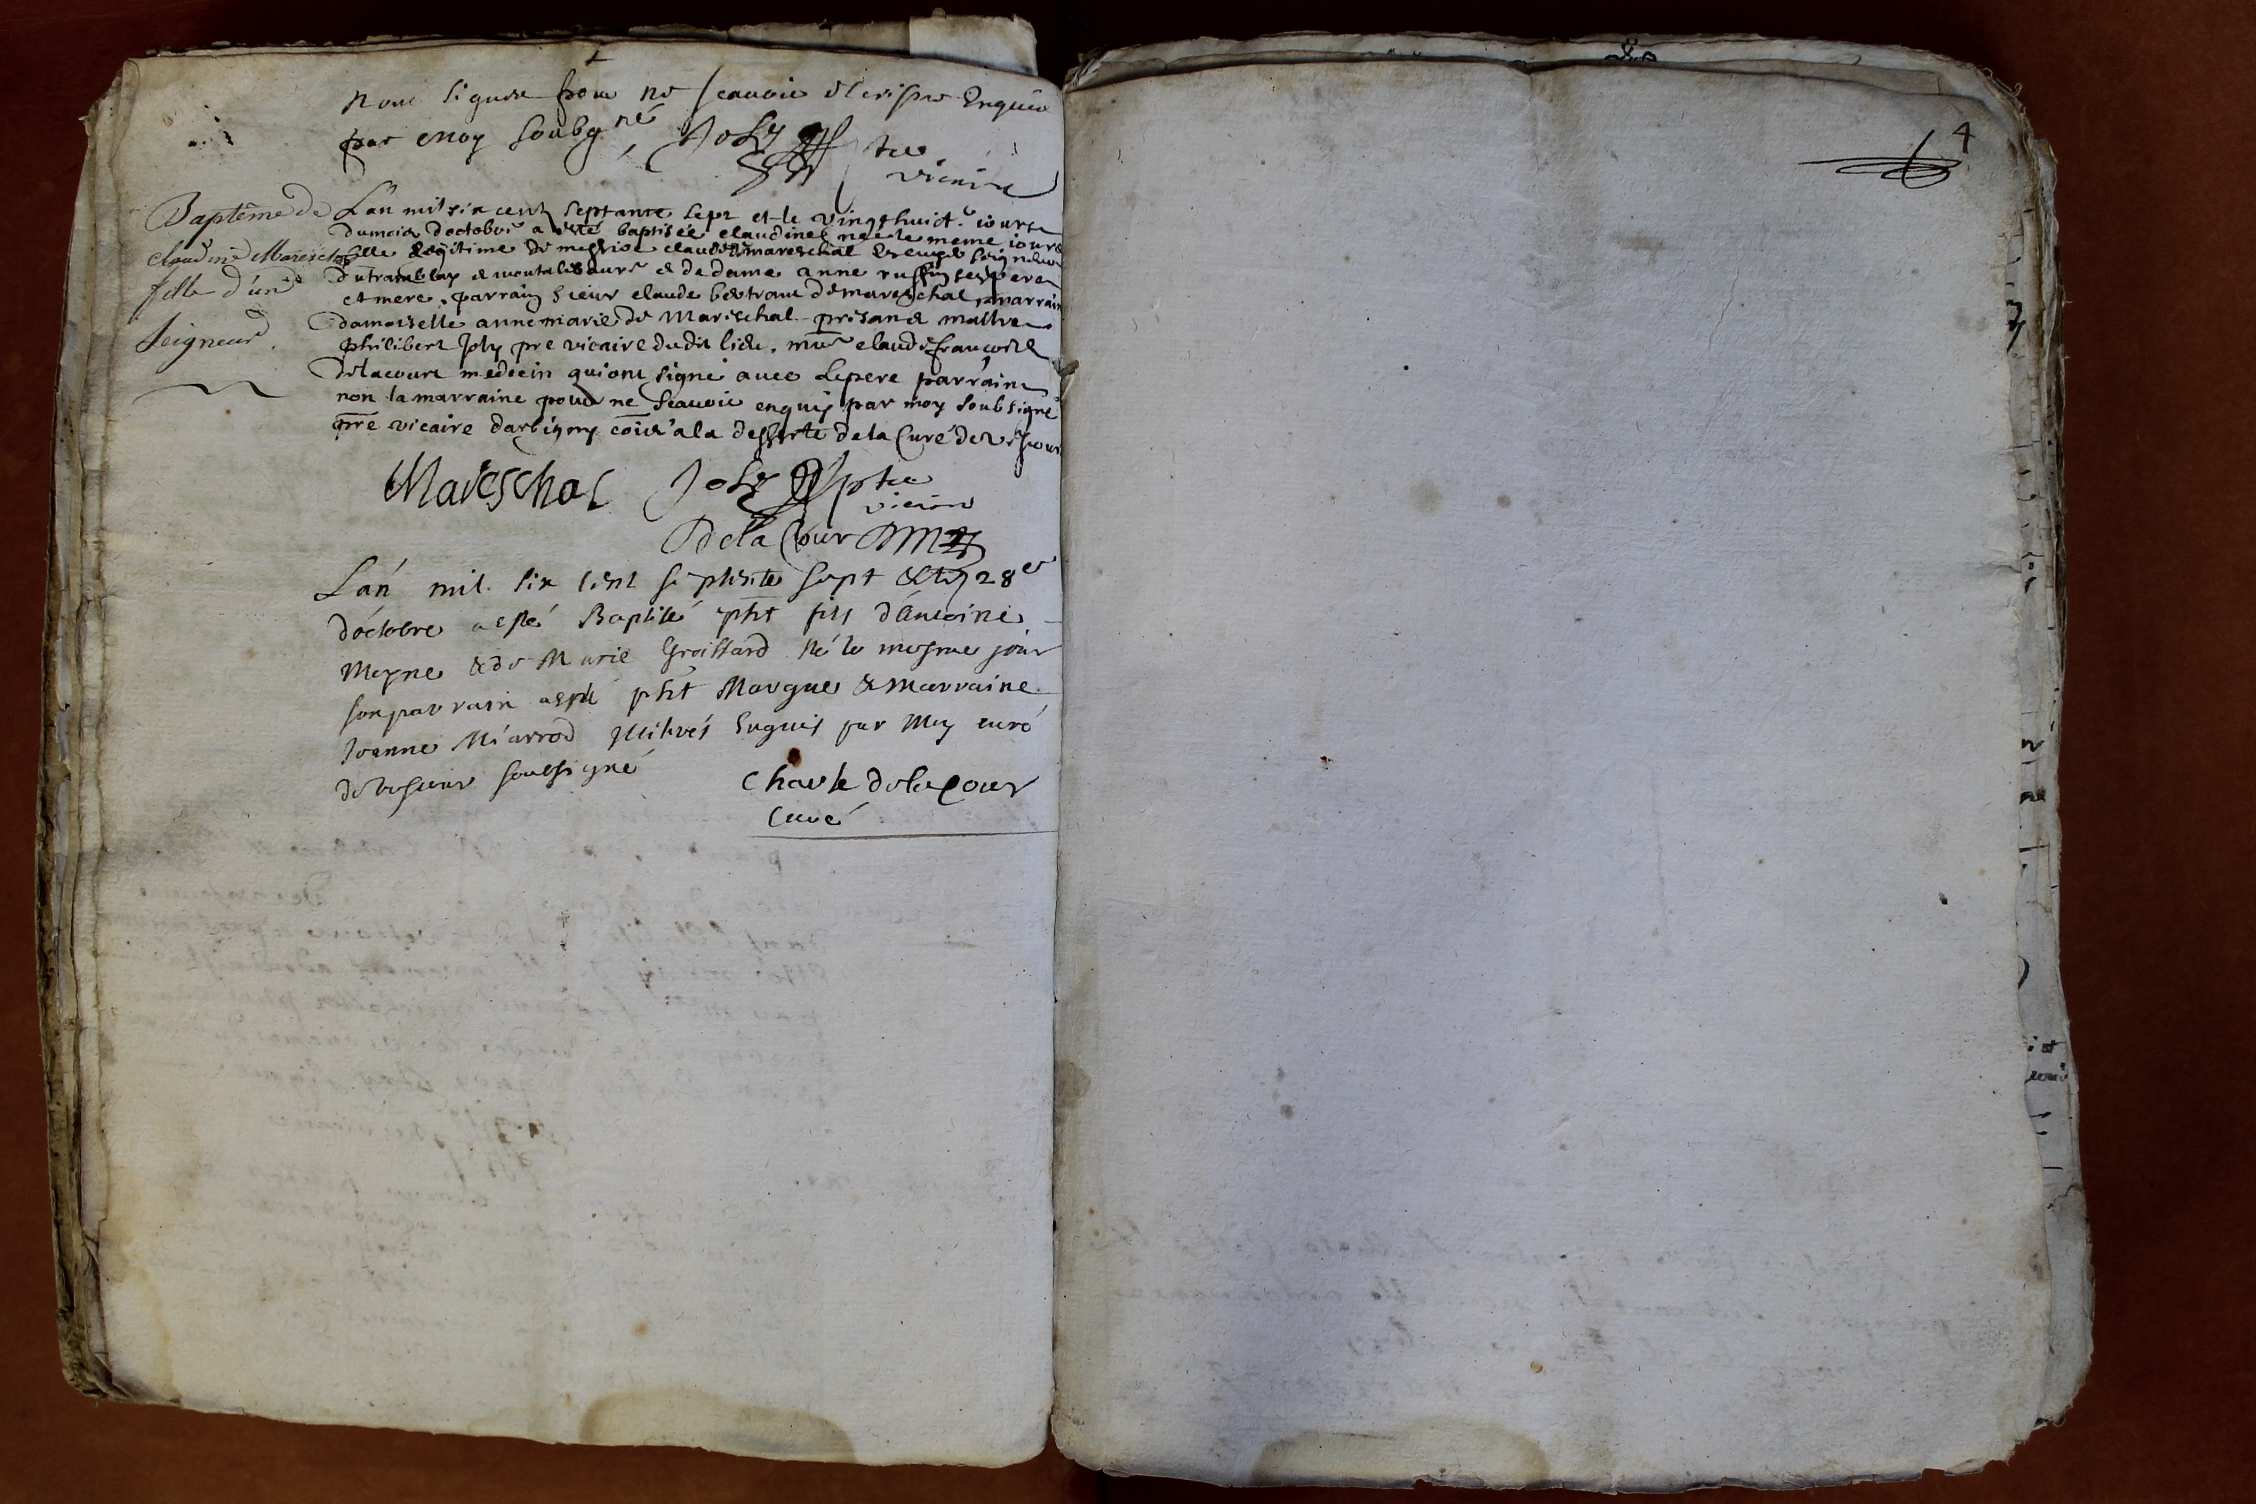 nont signer pour ne scavoir escripre Enquis
par moy soubg.né Joly ptre
vicaire
Baptême de
claudine Mareschal
fille d'un
Seigneur.
L'an mil six cent septante sept et le vingt huict.e iour
du mois d'octobre a esté baptisée claudine née le meme iour
fille legitime de messire claude mareschal Escuyer seigneur
du tramblay et de dame anne ses pere
et mere, parrain sieur claude bertrant de mareschal, marraine
damoiselle anne marie de Mareschal presand maitre
philibert Joly pre vicaire dudit lieu. claude françois
delacourt medecin qui ont signé avec le pere parrain
non la marraine pour ne scavoir enquis par moy soubsigné
pre vicaire d'arbigny a la desserte de la Cure de
Mareschal Joly ptre
vicaire
De la Cour DM
L'an mil six cent septente sept & le 28e
d'octobre a esté Baptisé pht fils d'Antoine
Moyne & de Marie Groissard né le mesme jour
son parrain a esté pht Morgue & marraine
Joanne illiterés Enquis par moy curé
de soussigné
Charle de la Cour
Curé
4